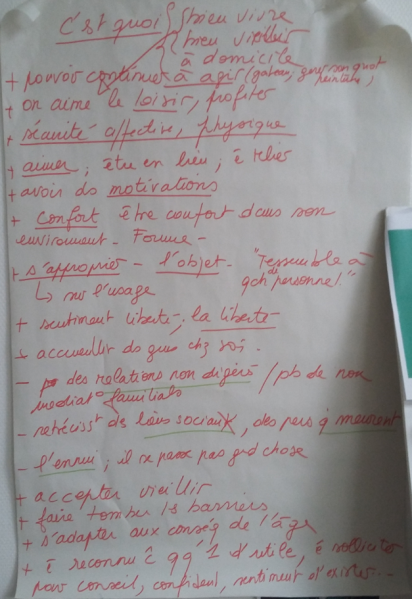 C'est quoi { bien vivre
bien vieillir
à domicile
+ pouvoir continuer à agir (gateau, peinture,
+ on aime le loisir, profiter
+ sécurité affective, physique
+ aimer; être en lien; ê relié
+ avoir ds motivations
+ confort être confort dans son
enviroment - Forme -
+ s'approprier - l'objet - "ressemble à
↳ sur l'usage qch de personnel"
+ sentiment liberté; la liberté
+ accueillir ds gens chz soi.
- des relations non digéré / pb de non
mediat° familials
- rétréciss^t de liens sociaux, des pers q meurent
- l'ennui; il se passe pas grd chose
+ accepter vieillir
+ faire tomber ls barriers
+ s'adapter aux conséq de l'âge
+ ê reconnu c qq'1 d'utile, ê solliciter
pour conseil, confident, sentiment d'exister --